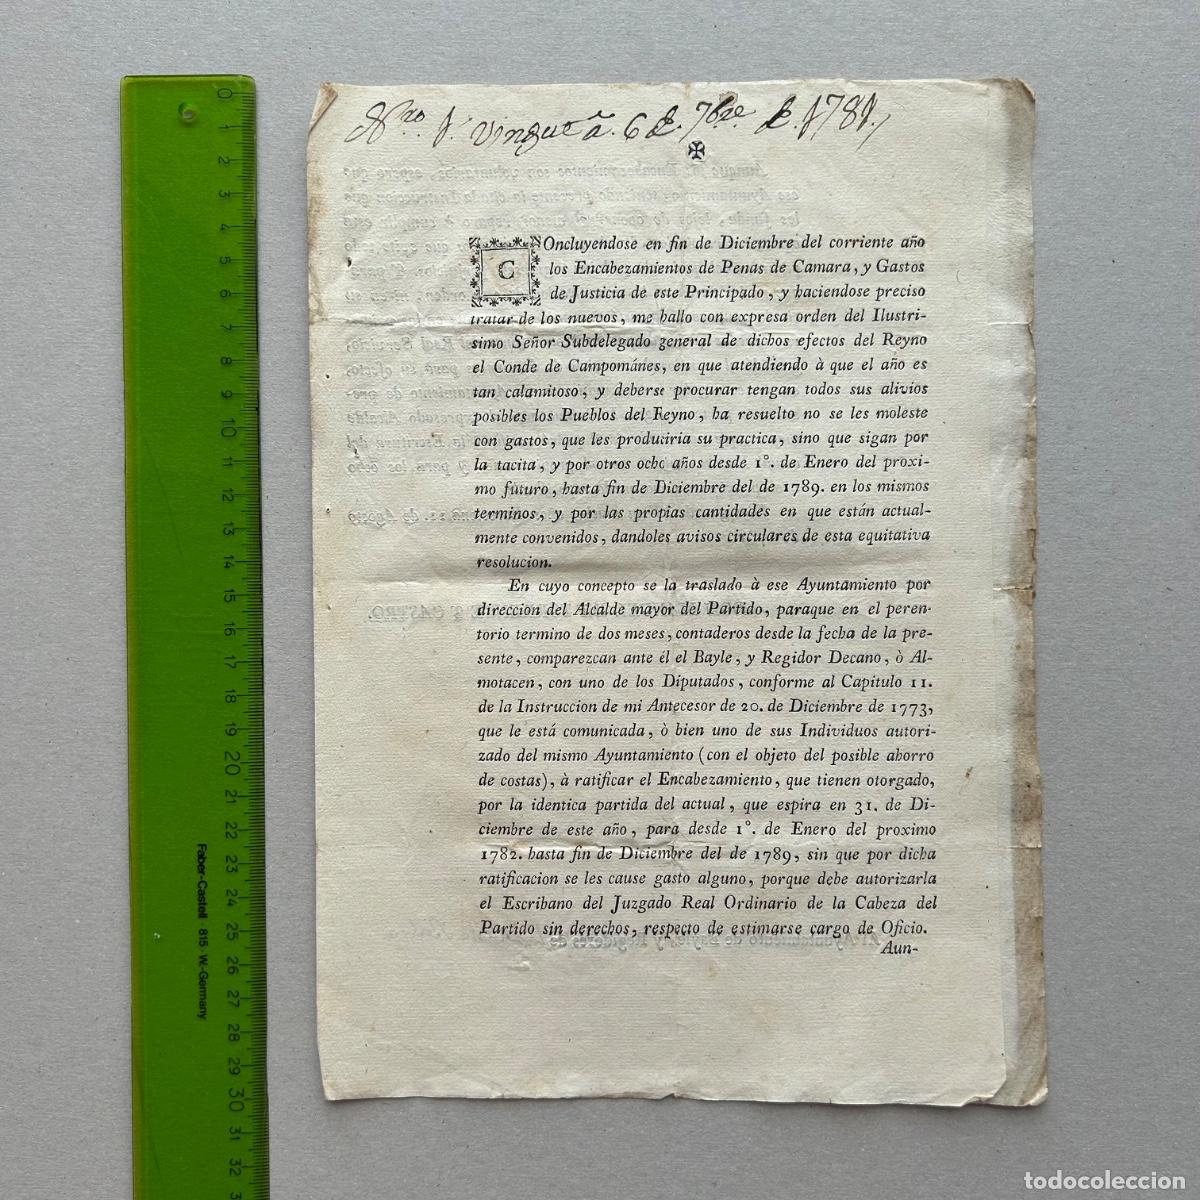 6 de 7bre de 1781,
COncluyendose en fin de Diciembre del corriente año
los Encabezamientos de Penas de Camara, y Gastos
de Justicia de este Principado, y haciendose preciso
tratar de los nuevos, me hallo con expresa orden del Ilustri-
simo Señor Subdelegado general de dichos efectos del Reyno
el Conde de Campománes, en que atendiendo à que el año es
tan calamitoso, y deberse procurar tengan todos sus alivios
posibles los Pueblos del Reyno, ha resuelto no se les moleste
con gastos, que les produciria su practica, sino que sigan por
la tacita, y por otros ocho años desde 1º. de Enero del proxi-
mo futuro, hasta fin de Diciembre del de 1789. en los mismos
terminos, y por las propias cantidades en que están actual-
mente convenidos, dandoles avisos circulares de esta equitativa
resolucion.
En cuyo concepto se la traslado à ese Ayuntamiento por
direccion del Alcalde mayor del Partido, paraque en el peren-
torio termino de dos meses, contaderos desde la fecha de la pre-
sente, comparezcan ante él el Bayle, y Regidor Decano, ò Al-
motacen, con uno de los Diputados, conforme al Capitulo 11.
de la Instruccion de mi Antecesor de 20. de Diciembre de 1773,
que le está comunicada, ò bien uno de sus Individuos autori-
zado del mismo Ayuntamiento (con el objeto del posible ahorro
de costas), à ratificar el Encabezamiento, que tienen otorgado,
por la identica partida del actual, que espira en 31. de Di-
ciembre de este año, para desde 1º. de Enero del proximo
1782. hasta fin de Diciembre del de 1789, sin que por dicha
ratificacion se les cause gasto alguno, porque debe autorizarla
el Escribano del Juzgado Real Ordinario de la Cabeza del
Partido sin derechos, respecto de estimarse cargo de Oficio.
Aun-
0
1
2
3
4
5
6
7
8
9
10
11
12
13
14
15
16
17
18
19
20
21
22
23
24
25
26
27
28
29
30
31
32
Faber-Castell · 815 · W.-Germany
todocoleccion